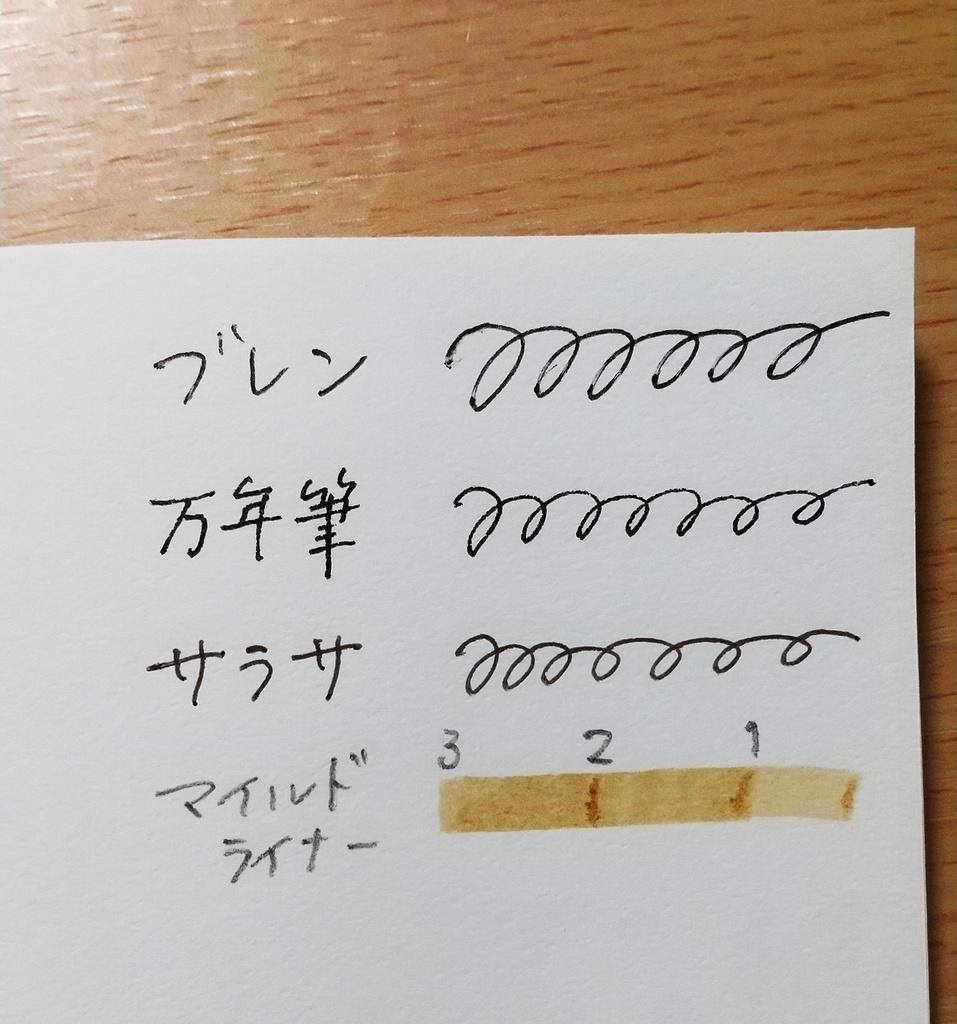 ブレン
万年筆
サラサ
3 2 1
マイルド
ライナー